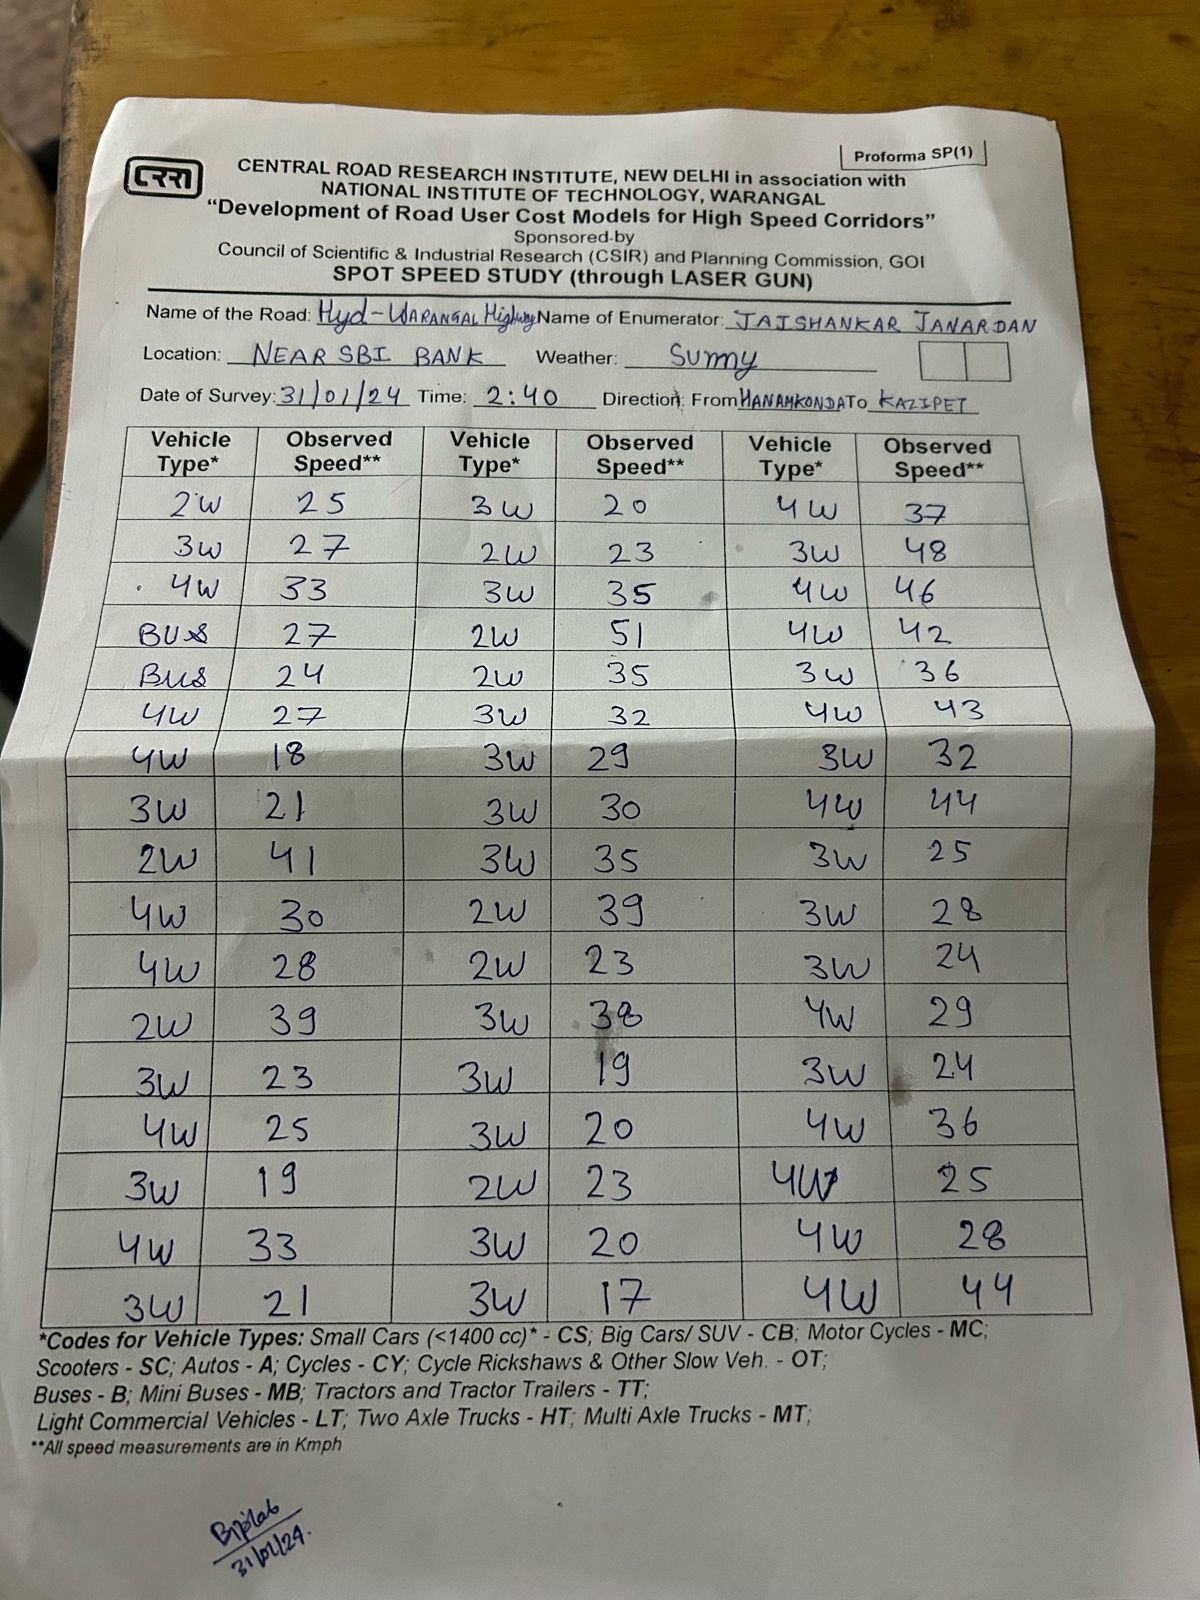 Proforma SP(1)
CRRI
CENTRAL ROAD RESEARCH INSTITUTE, NEW DELHI in association with
NATIONAL INSTITUTE OF TECHNOLOGY, WARANGAL
“Development of Road User Cost Models for High Speed Corridors”
Sponsored by
Council of Scientific & Industrial Research (CSIR) and Planning Commission, GOI
SPOT SPEED STUDY (through LASER GUN)
Name of the Road: Hyd-WARANGAL Highway Name of Enumerator: JAISHANKAR JANARDAN
Location: NEAR SBI BANK Weather: Sunny
Date of Survey: 31/01/24 Time: 2:40 Direction: From HANAMKONDA To KAZIPET
Vehicle Type* Observed Speed** Vehicle Type* Observed Speed** Vehicle Type* Observed Speed**
2W 25 3W 20 4W 37
3W 27 2W 23 3W 48
4W 33 3W 35 4W 46
BUS 27 2W 51 4W 42
BUS 24 2W 35 3W 36
4W 27 3W 32 4W 43
4W 18 3W 29 3W 32
3W 21 3W 30 4W 44
2W 41 3W 35 3W 25
4W 30 2W 39 3W 28
4W 28 2W 23 3W 24
2W 39 3W 38 4W 29
3W 23 3W 19 3W 24
4W 25 3W 20 4W 36
3W 19 2W 23 4W 25
4W 33 3W 20 4W 28
3W 21 3W 17 4W 44
*Codes for Vehicle Types: Small Cars (<1400 cc)* - CS; Big Cars/ SUV - CB; Motor Cycles - MC;
Scooters - SC; Autos - A; Cycles - CY; Cycle Rickshaws & Other Slow Veh. - OT;
Buses - B; Mini Buses - MB; Tractors and Tractor Trailers - TT;
Light Commercial Vehicles - LT; Two Axle Trucks - HT; Multi Axle Trucks - MT;
**All speed measurements are in Kmph
Biplab
31/01/24.